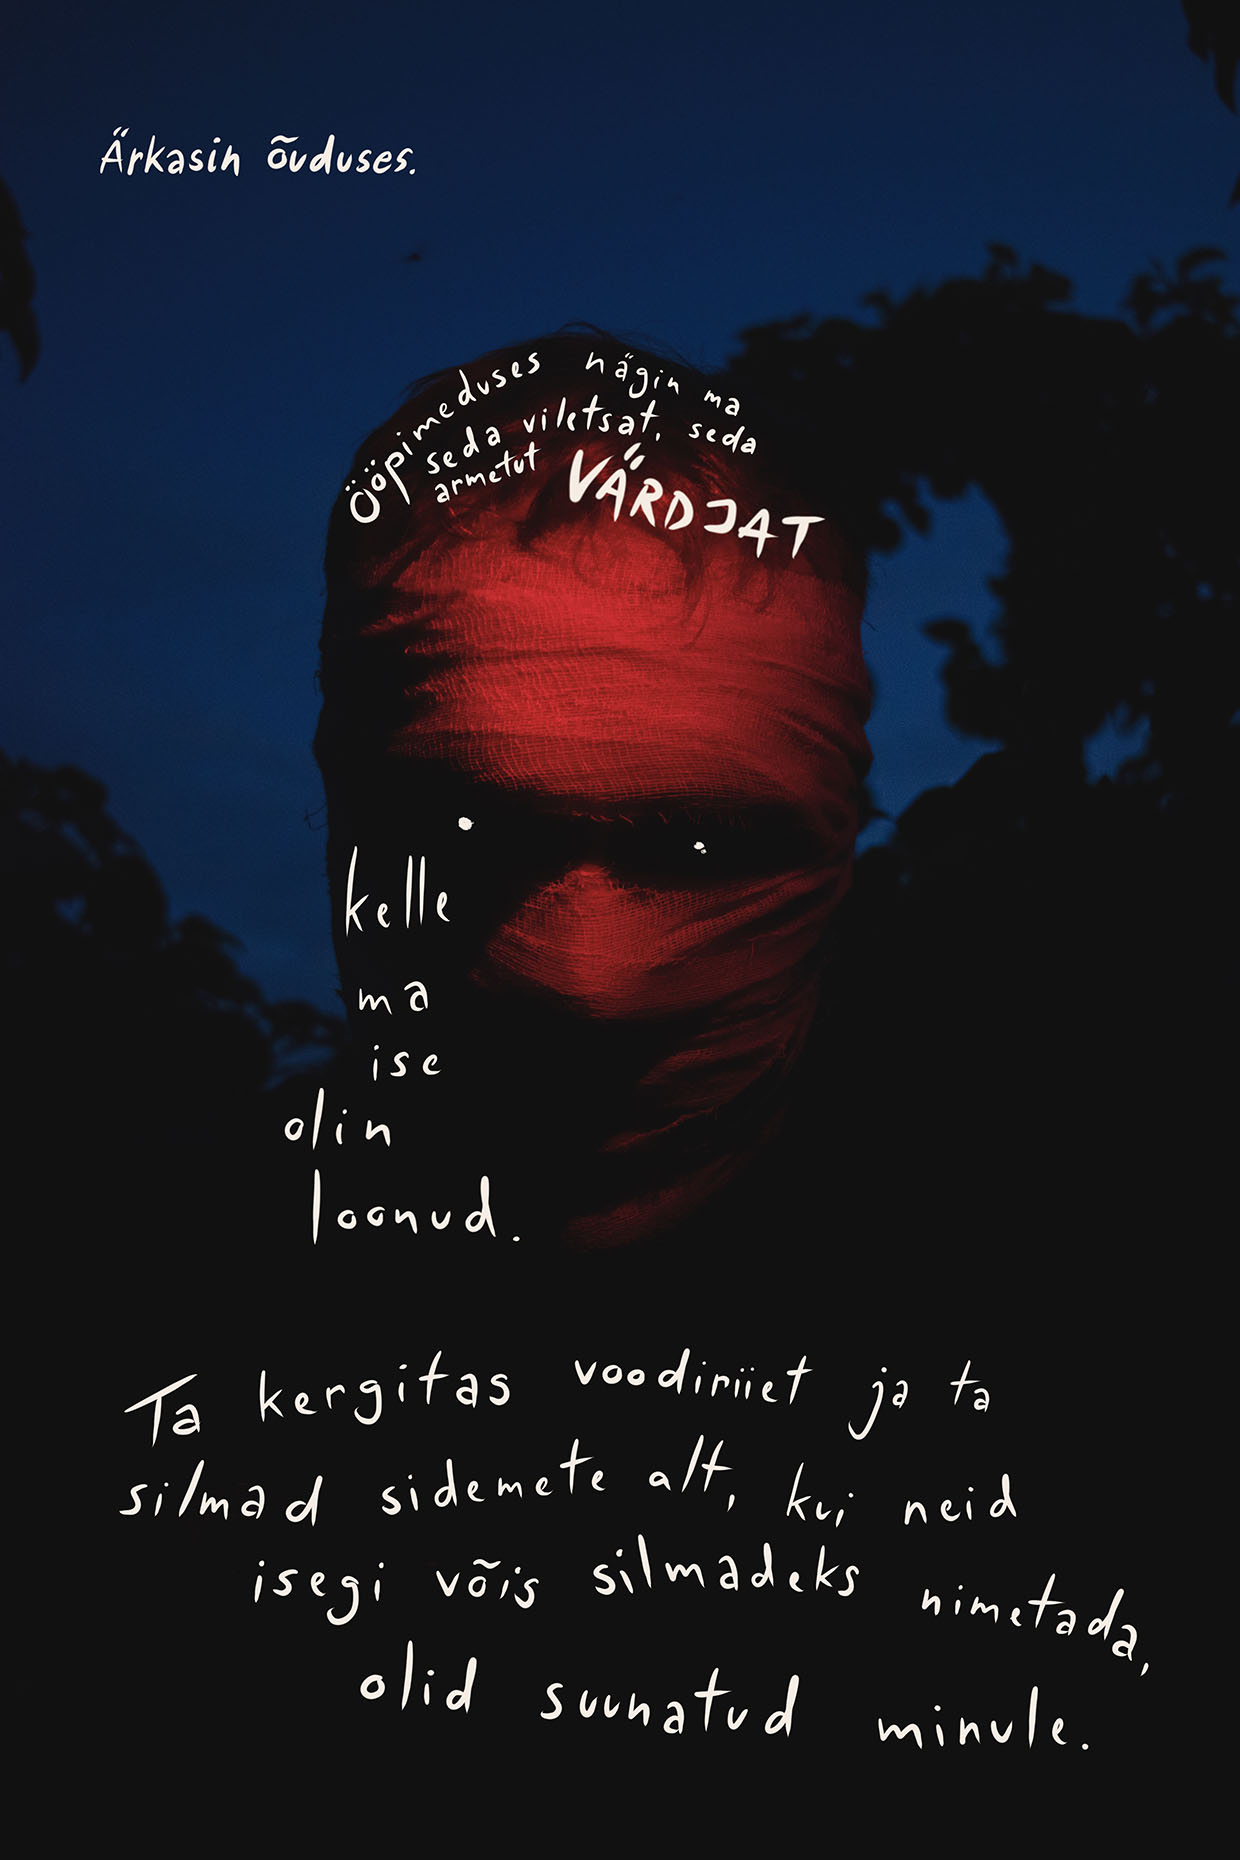 Ärkasin õuduses.
Ööpimeduses nägin ma
seda viletsat, seda
armetut VÄRDJAT
kelle
ma
ise
olin
loonud.
Ta kergitas voodiriiet ja ta
silmad sidemete alt, kui neid
isegi võis silmadeks nimetada,
olid suunatud minule.